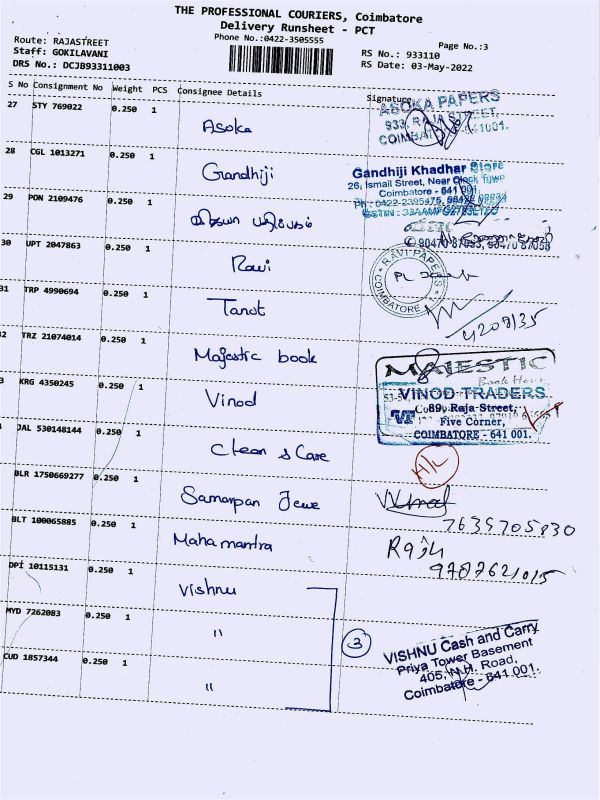 THE PROFESSIONAL COURIERS, Coimbatore
Delivery Runsheet - PCT
Phone No.:0422-3505555
Page No.:3
Route: RAJASTREET
Staff: GOKILAVANI
DRS No.: DCJB93311003
RS No.: 933110
RS Date: 03-May-2022
S No Consignment No Weight PCS Consignee Details Signature
27 STY 769022 0.250 1 Asoka
ASOKA PAPERS
933, RAJA STREET,
COIMBATORE-641001.
28 CGL 1013271 0.250 1 Gandhiji
Gandhiji Khadhar Store
26, Ismail Street, Near Clock Tower
Coimbatore - 641 001
Ph : 0422-2395475,
GSTIN :
29 PON 2109476 0.250 1
90470 87058
30 UPT 2047863 0.250 1 Ravi
RAVI PAPERS
COIMBATORE
31 TRP 4990694 0.250 1 Tanot
4209/35
2 TRZ 21074014 0.250 1 Majestic book
MAJESTIC
Book House
3 KRG 4350245 0.250 1 Vinod
VINOD TRADERS
VT
89, Raja Street,
Five Corner,
COIMBATORE - 641 001.
JAL 530148144 0.250 1 Clean & Care
H/L
BLR 1750669277 0.250 1 Samarpan Jewe
Vinod
7639705830
BLT 100065885 0.250 1 Mahamantra
Raju
9787621015
DPI 10115131 0.250 1 Vishnu
MYD 7262083 0.250 1 "
3
VISHNU Cash and Carry
Priya Tower Basement
405, N.H. Road,
Coimbatore - 641 001.
CUD 1857344 0.250 1 "